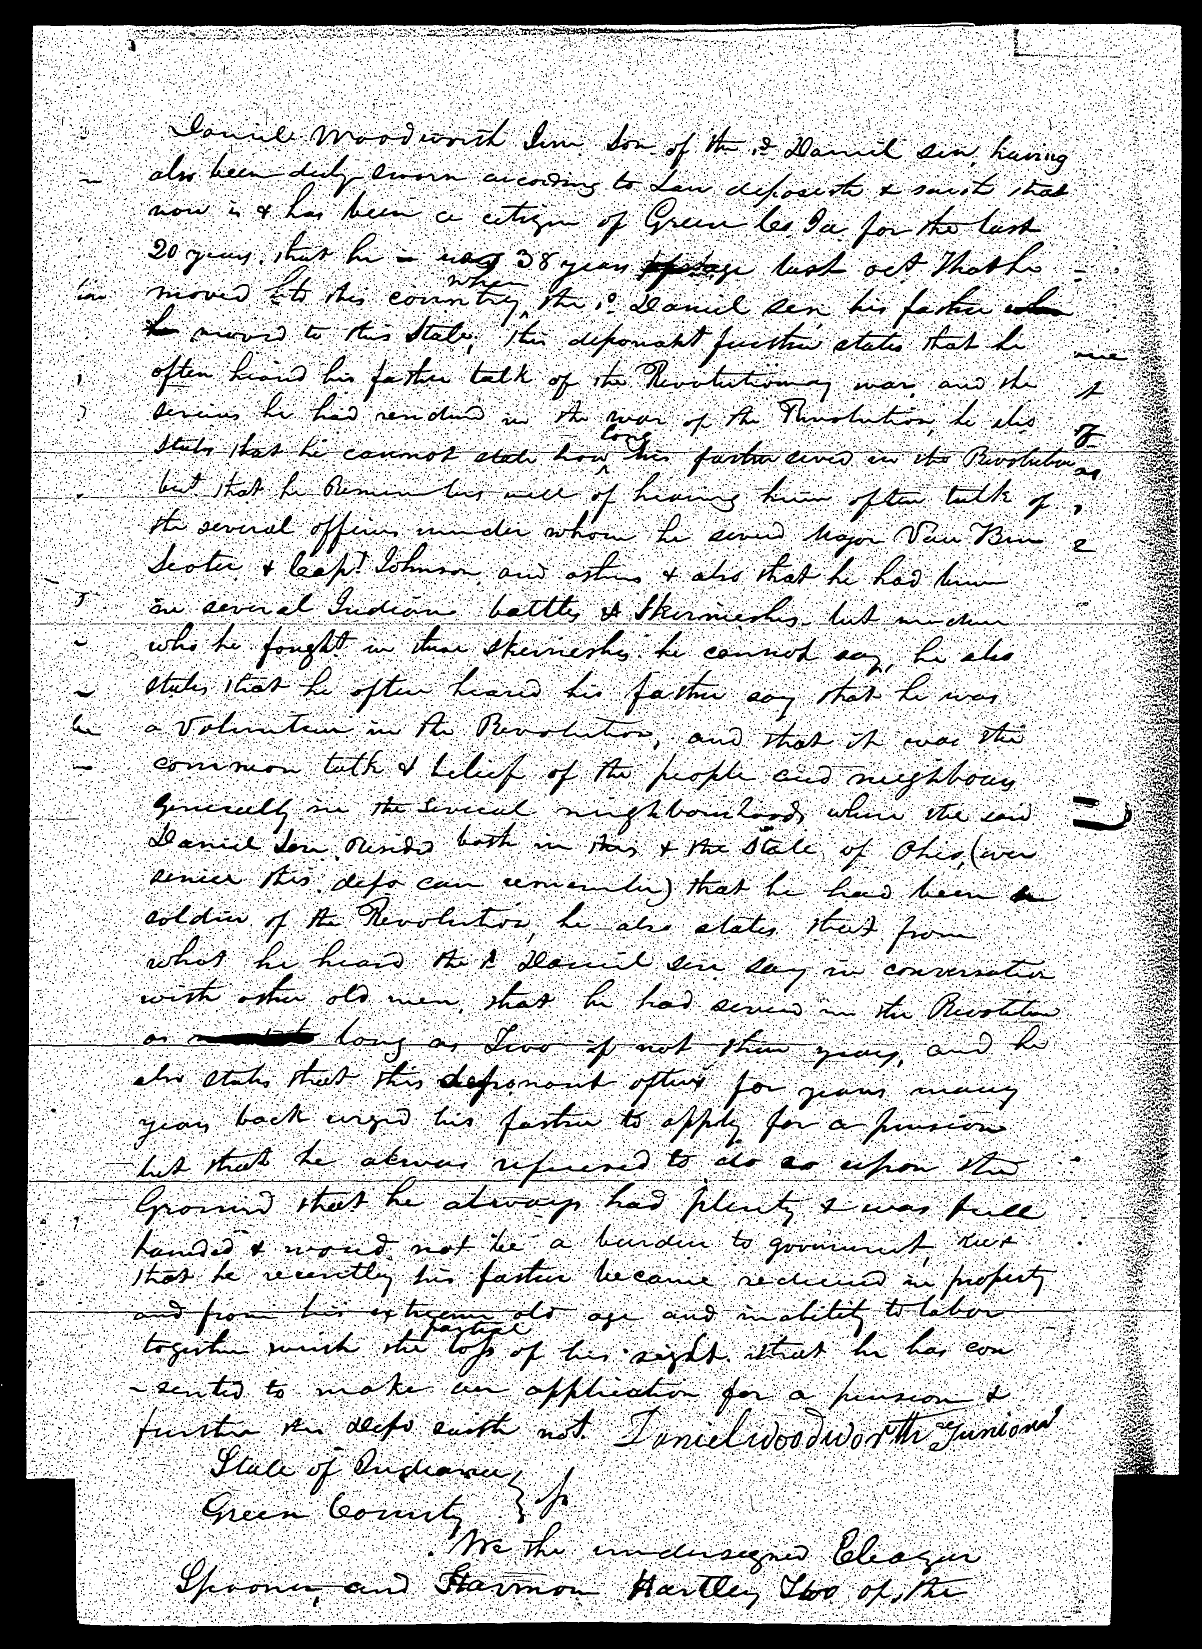 Daniel Woodworth Jun. Son of the sd. Daniel Sen. having
also been duly sworn according to Law deposeth & saith that
now is & has been a citizen of Green Co Ia. for the last
20 years, that he is 38 years age last oct That he
moved to this country when the sd. Daniel Sen. his father
moved to this State, this deponant further states that he
often heard his father talk of the Revolutionary war and the
services he had rendered in the war of the Revolution, he also
states that he cannot state how long his father served in the Revolution
but that he Remembers well of hearing him often talk of
the several officers under whom he served Major Van Bun
& Capt. Johnson, and others & also that he had been
in several Indian battles & Skirmishes, but under
who he fought in these skermeshes he cannot say, he also
states that he often heard his father say that he was
a Volunteer in the Revolution, and that it was the
common talk & belief of the people and neighbours
generally in the several neighbourhoods where the said
Daniel Sen. resided both in this & the State of Ohio, (ever
sence this depo can remember) that he had been a
soldier of the Revolution, he also states that from
what he heard the sd Daniel Sen say in conversation
with other old men, that he had served in the Revolution
as long as Two if not three years, and he
also states that this deponant often for years many
years back urged his father to apply for a pension
but that he always refused to do so upon the
Ground that he always had plenty & was full
handed & would not be a burden to goverment, but
that he recently his father became reduced in property
and from his extreme old age and inability to labor
together with the partial loss of his sight that he has con
-sented to make an application for a pension &
further this depo saith not. Daniel Woodworth Junional
State of Indiana }
Green County } ss
We the undersigned Eleazer
Spooner, and Harmon Hartley Two of the